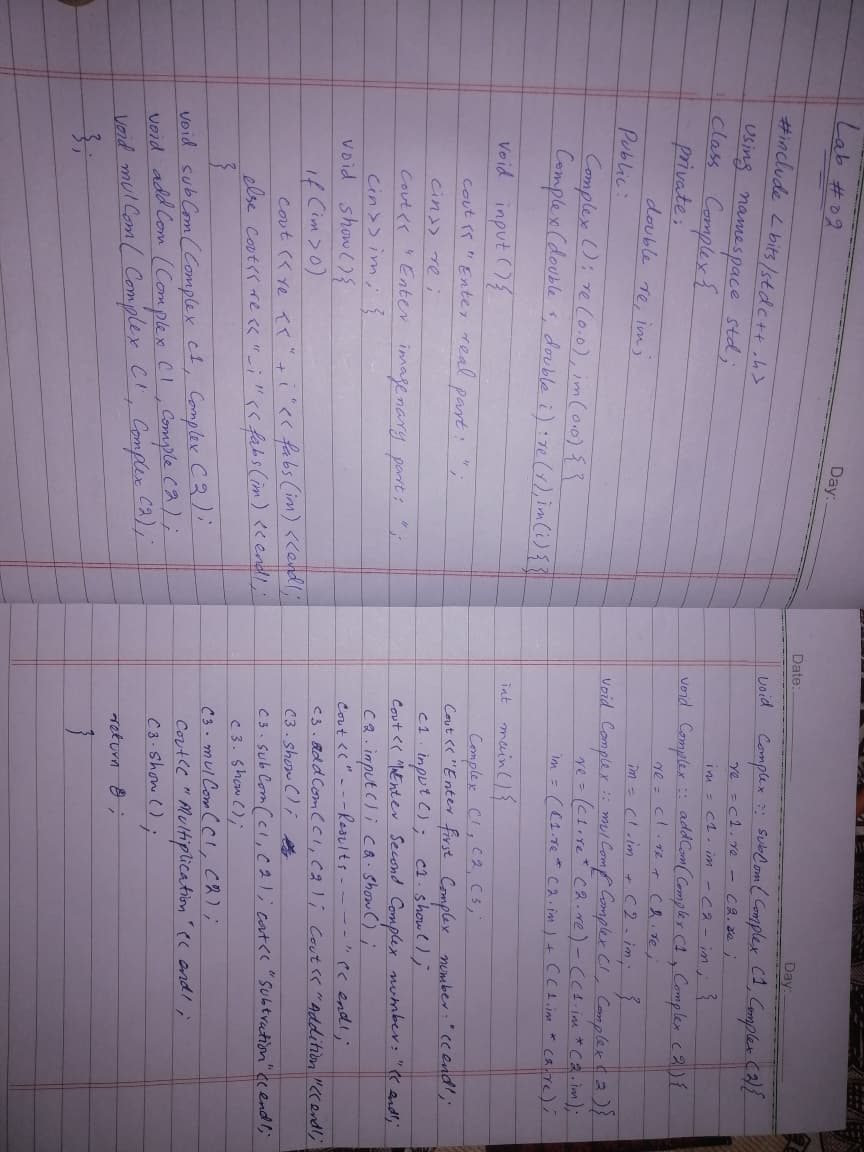 Lab # 02
Day:
#include <bits/stdc++.h>
using namespace std;
class Complex{
private:
double re, im;
Public:
Complex(): re(0.0), im(0.0){ }
Complex(double r, double i):re(r),im(i){}
void input(){
cout<<"Enter real part: ";
cin>> re;
Cout<< "Enter imagenary part: ";
Cin>> im; }
void show(){
if (im>0)
cout <<re << " + i" << fabs(im) <<endl;
else cout<<re<<"-i"<< fabs(im) <<endl;
}
void subCom(Complex c1, Complex c2);
void addCom (Complex c1, Comple c2);
void mulCom( Complex c1, Complex c2);
};
Date:
Day:
void Complex :: subCom(Complex c1, Complex c2){
re = c1.re - c2.re;
im = c1.im - c2-im; }
void Complex :: addCom(Complex c1, Complex c2){
re = c1.re + c2.re;
im = c1.im + c2.im; }
void Complex :: mulCom(Complex c1, Complex c2){
re = (c1.re * c2.re) - (c1.im * c2.im);
im = (c1.re * c2.im) + (c1.im * c2.re);
int main(){
Complex c1, c2, c3;
Cout<<"Enter first Complex number: "<<endl;
c1.input(); c1.show();
Cout<< "Enter Second Complex number: "<< endl;
c2.input(); c2.show();
cout <<"--Results---" << endl;
c3.addCom(c1,c2); cout<<"Addition "<<endl;
c3.show();
c3.subCom(c1,c2); cout<< "Subtration"<<endl;
c3.show();
c3.mulCom(c1, c2);
Cout<< "Multiplication "<< endl;
c3.show();
return 0;
}